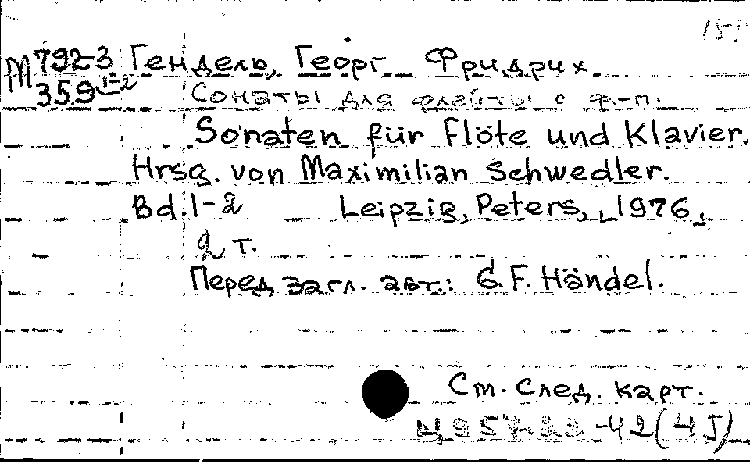 М 792-3 Гендель, Георг Фридрих
359 1-2 Сонаты для флейты с ф-п.
Sonaten für Flöte und Klavier.
Hrsg. von Maximilian Schwedler.
Bd. 1-2 Leipzig, Peters, 1976.
2 т.
Перед загл. авт.: G. F. Händel.
См. след. карт.